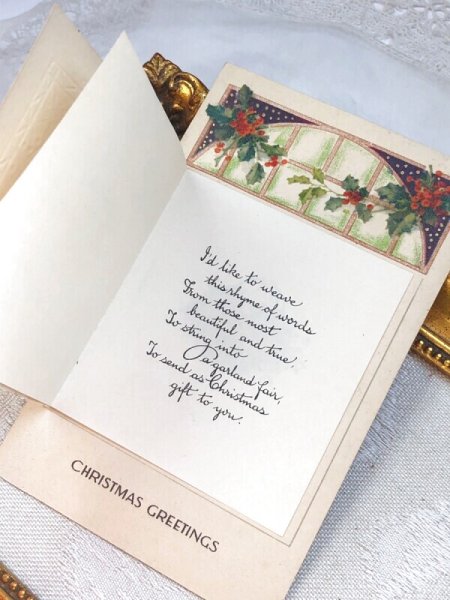 I'd like to weave
this rhyme of words
From those most
beautiful and true,
To string into
a garland fair,
To send as Christmas
gift to you.
CHRISTMAS GREETINGS